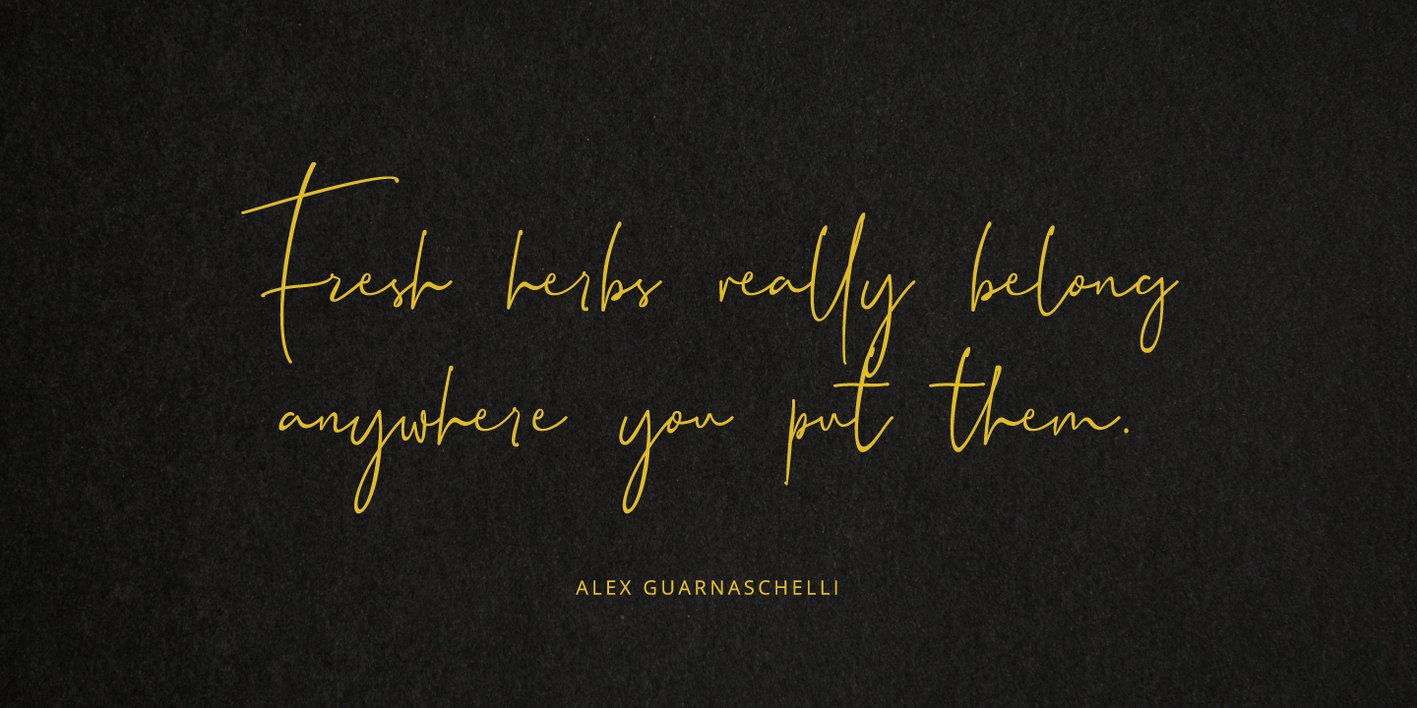 Fresh herbs really belong
anywhere you put them.
ALEX GUARNASCHELLI